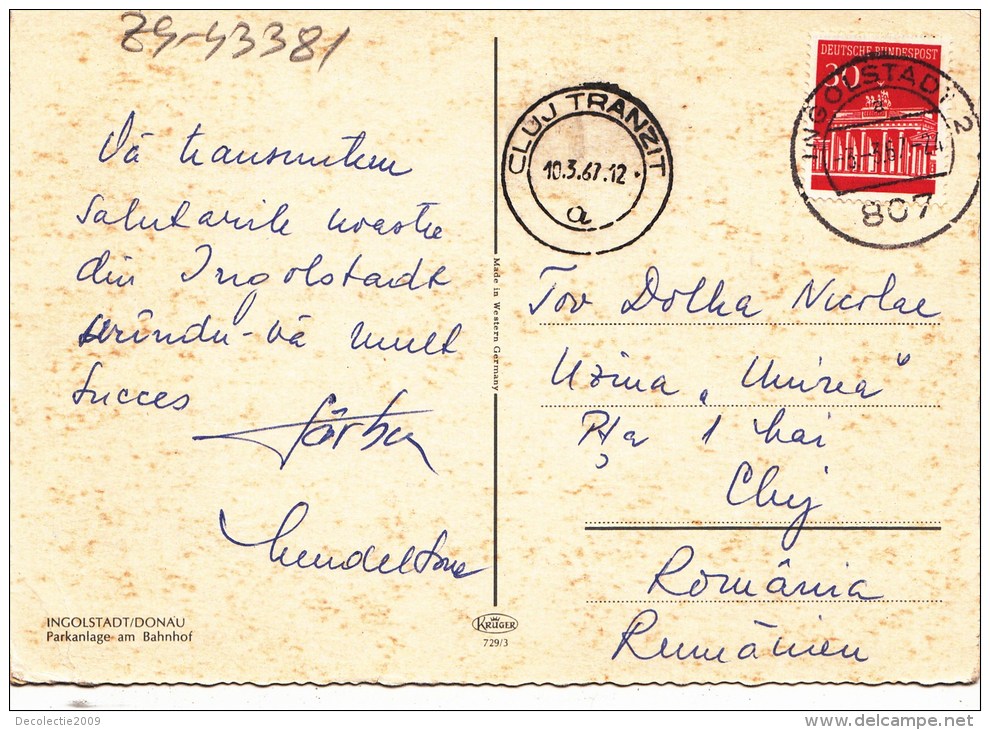 Z9-43381
Vă transmitem
salutările noastre
din Ingolstadt
urîndu-vă mult
succes
INGOLSTADT/DONAU
Parkanlage am Bahnhof
Made in Western Germany
KRÜGER
729/3
CLUJ TRANZIT
10.3.67.12
a
DEUTSCHE BUNDESPOST
30
INGOLSTADT 2
a
807
Tov Dolha Nicolae
Uzina „Unirea"
P-ţa 1 Mai
Cluj
România
Rumänien
Decolectie2009
www.delcampe.net